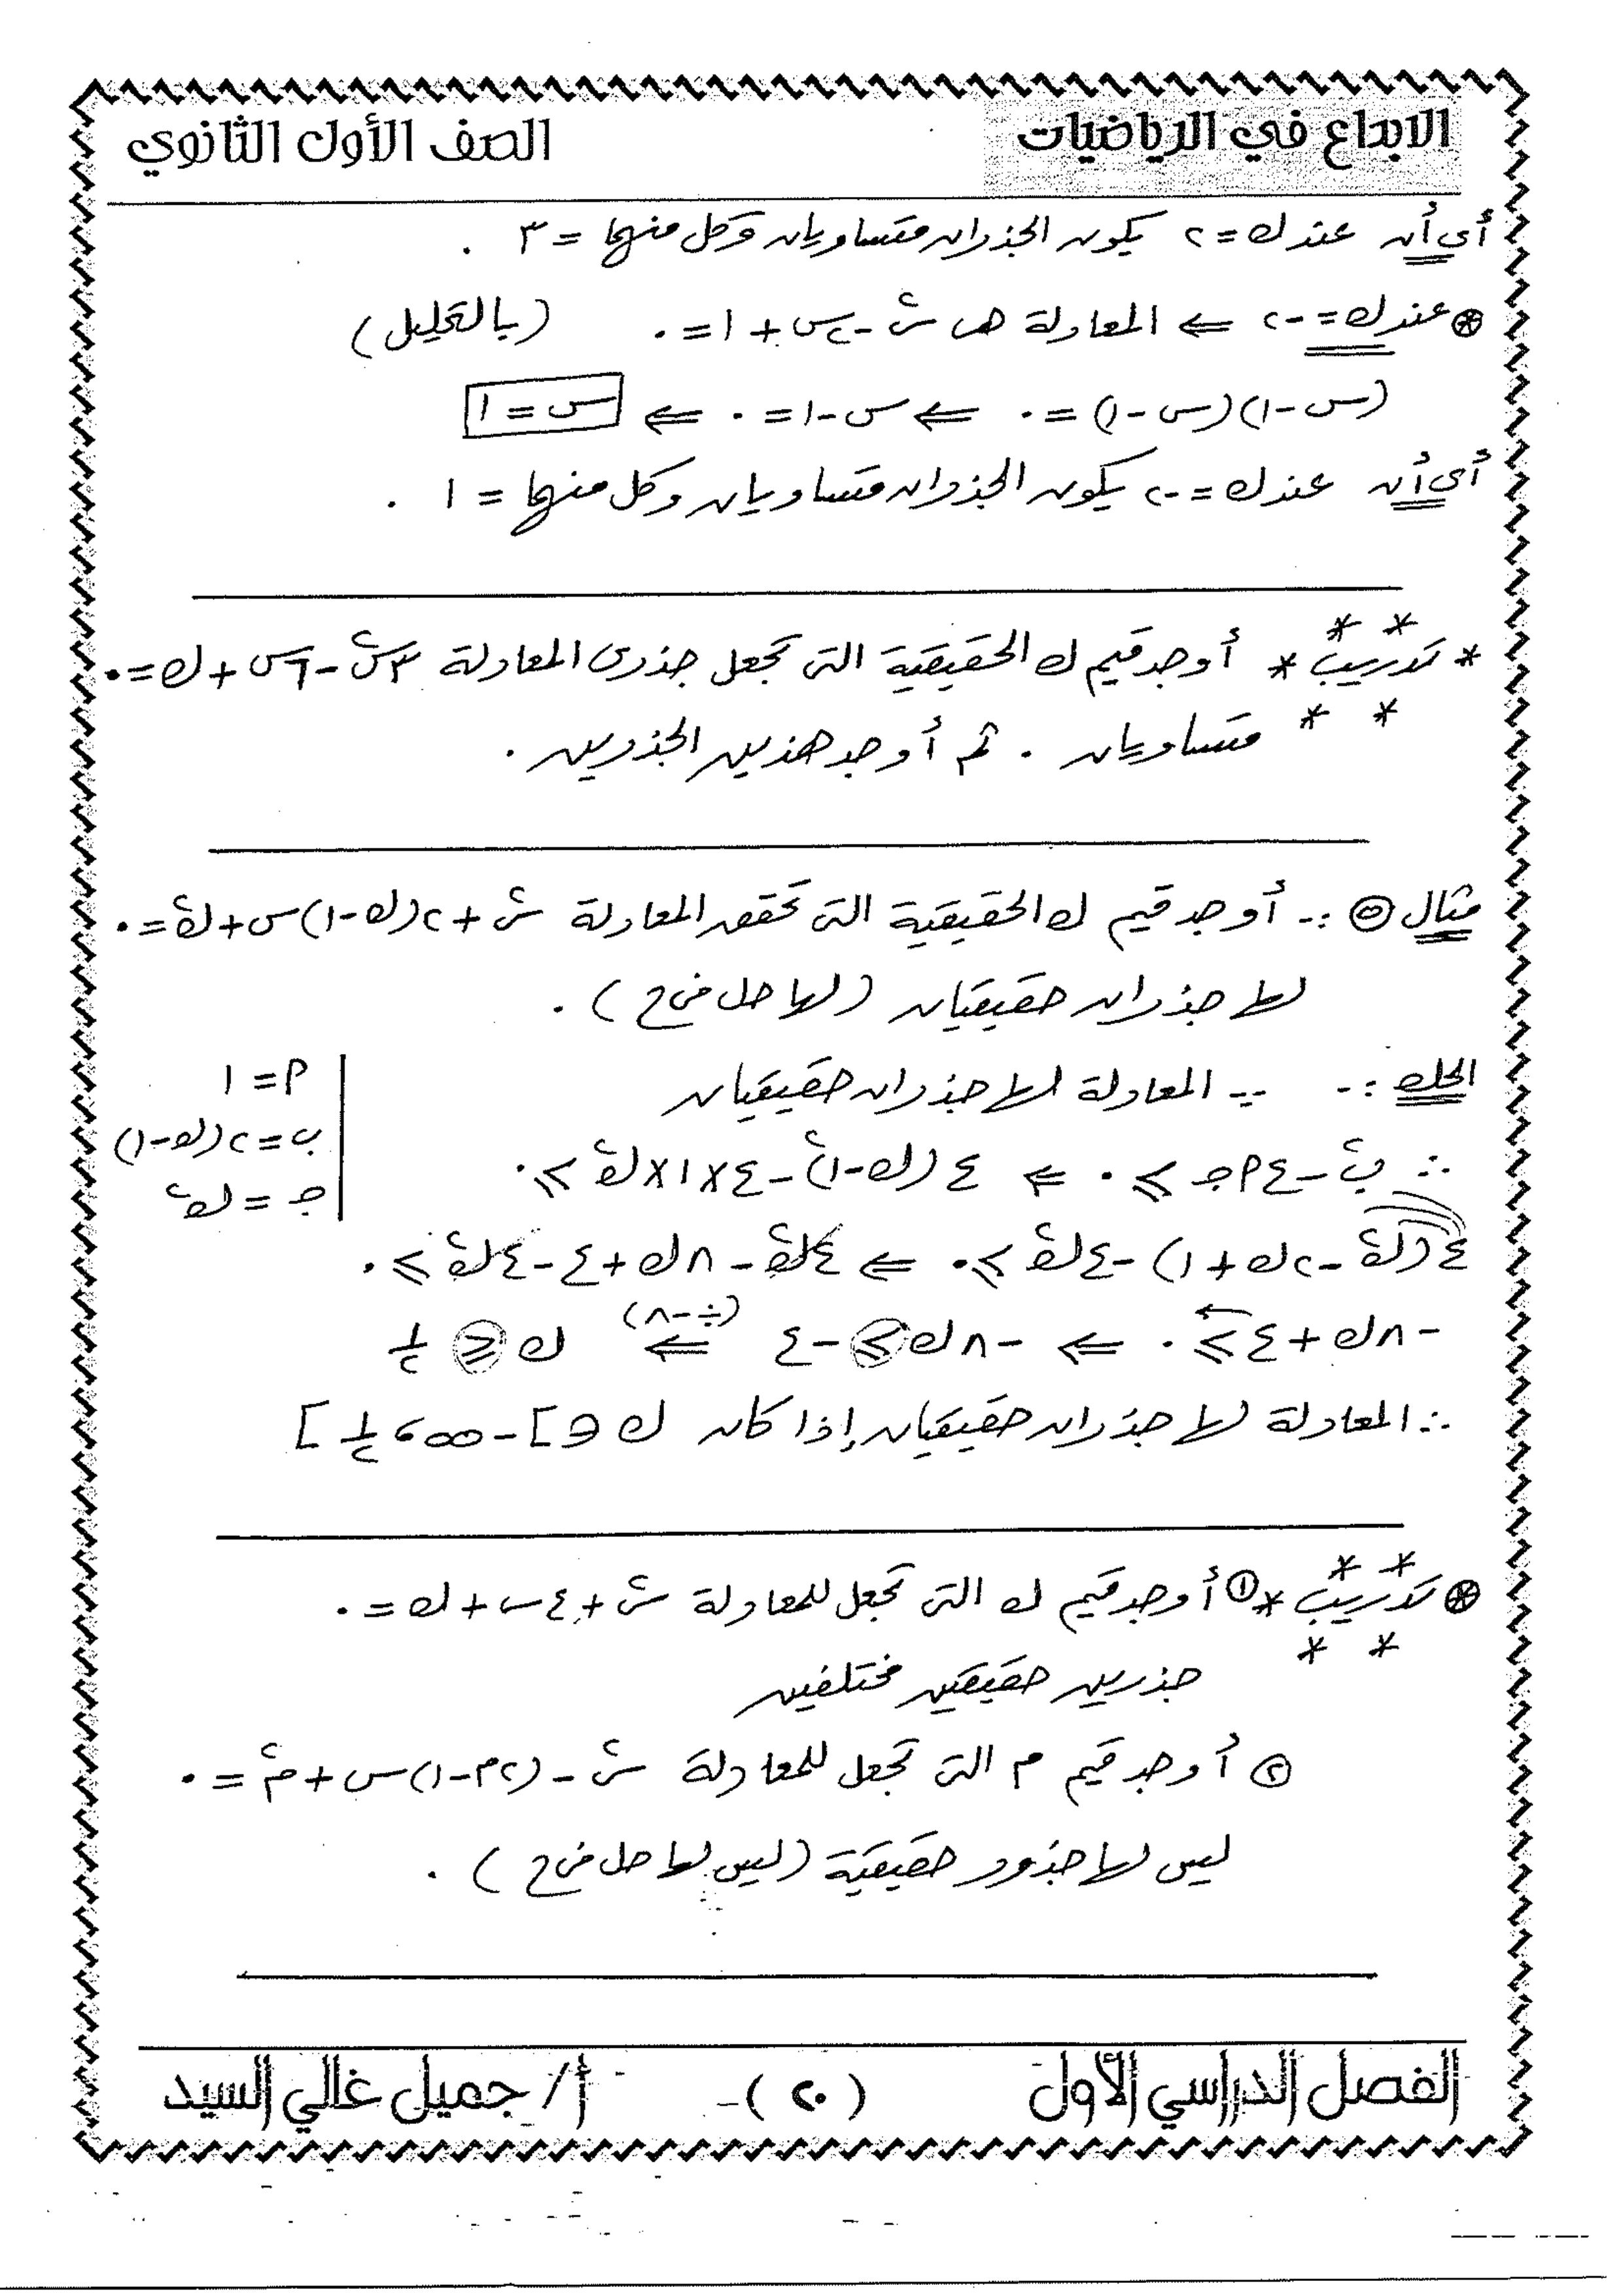 الابداع في الرياضيات
الصف الأول الثانوي
أى أن عند ك = ٢ يكون الجذران متساويان وكل منهما = ٣ .
⊛ عند ك = -٢ ⇐ المعادلة هى س² - ٢س + ١ = ٠ (بالتحليل)
(س - ١)(س - ١) = ٠ ⇐ س - ١ = ٠ ⇐ س = ١
أى أن عند ك = -٢ يكون الجذران متساويان وكل منهما = ١ .
* تدريب * أوجد قيم ك الحقيقية التى تجعل جذرى المعادلة ٣س² - ٦س + ك = ٠
متساويان . ثم أوجد هذين الجذرين .
مثال ⑤ :- أوجد قيم ك الحقيقية التى تحقق المعادلة س² + ٢(ك - ١)س + ك² = ٠
لها جذران حقيقيان (لها حل فى ح) .
الحل :- ∵ المعادلة لها جذران حقيقيان
∴ ب² - ٤أجـ ≥ ٠ ⇐ ٤(ك - ١)² - ٤×١×ك² ≥ ٠
أ = ١
ب = ٢(ك - ١)
جـ = ك²
٤(ك² - ٢ك + ١) - ٤ك² ≥ ٠ ⇐ ٤ك² - ٨ك + ٤ - ٤ك² ≥ ٠
-٨ك + ٤ ≥ ٠ ⇐ -٨ك ≥ -٤ ⇐ (÷ -٨) ك ≤ ١/٢
∴ المعادلة لها جذران حقيقيان إذا كان ك ∈ ]-∞ ، ١/٢]
⊛ تدريب * ① أوجد قيم ك التى تجعل للمعادلة س² + ٤س + ك = ٠
جذرين حقيقين مختلفين
② أوجد قيم م التى تجعل للمعادلة س² - (٢م - ١)س + م² = ٠
ليس لها جذور حقيقية (ليس لها حل فى ح) .
الفصل الدراسي الأول
( ٢٠ )
أ / جميل غالي السيد